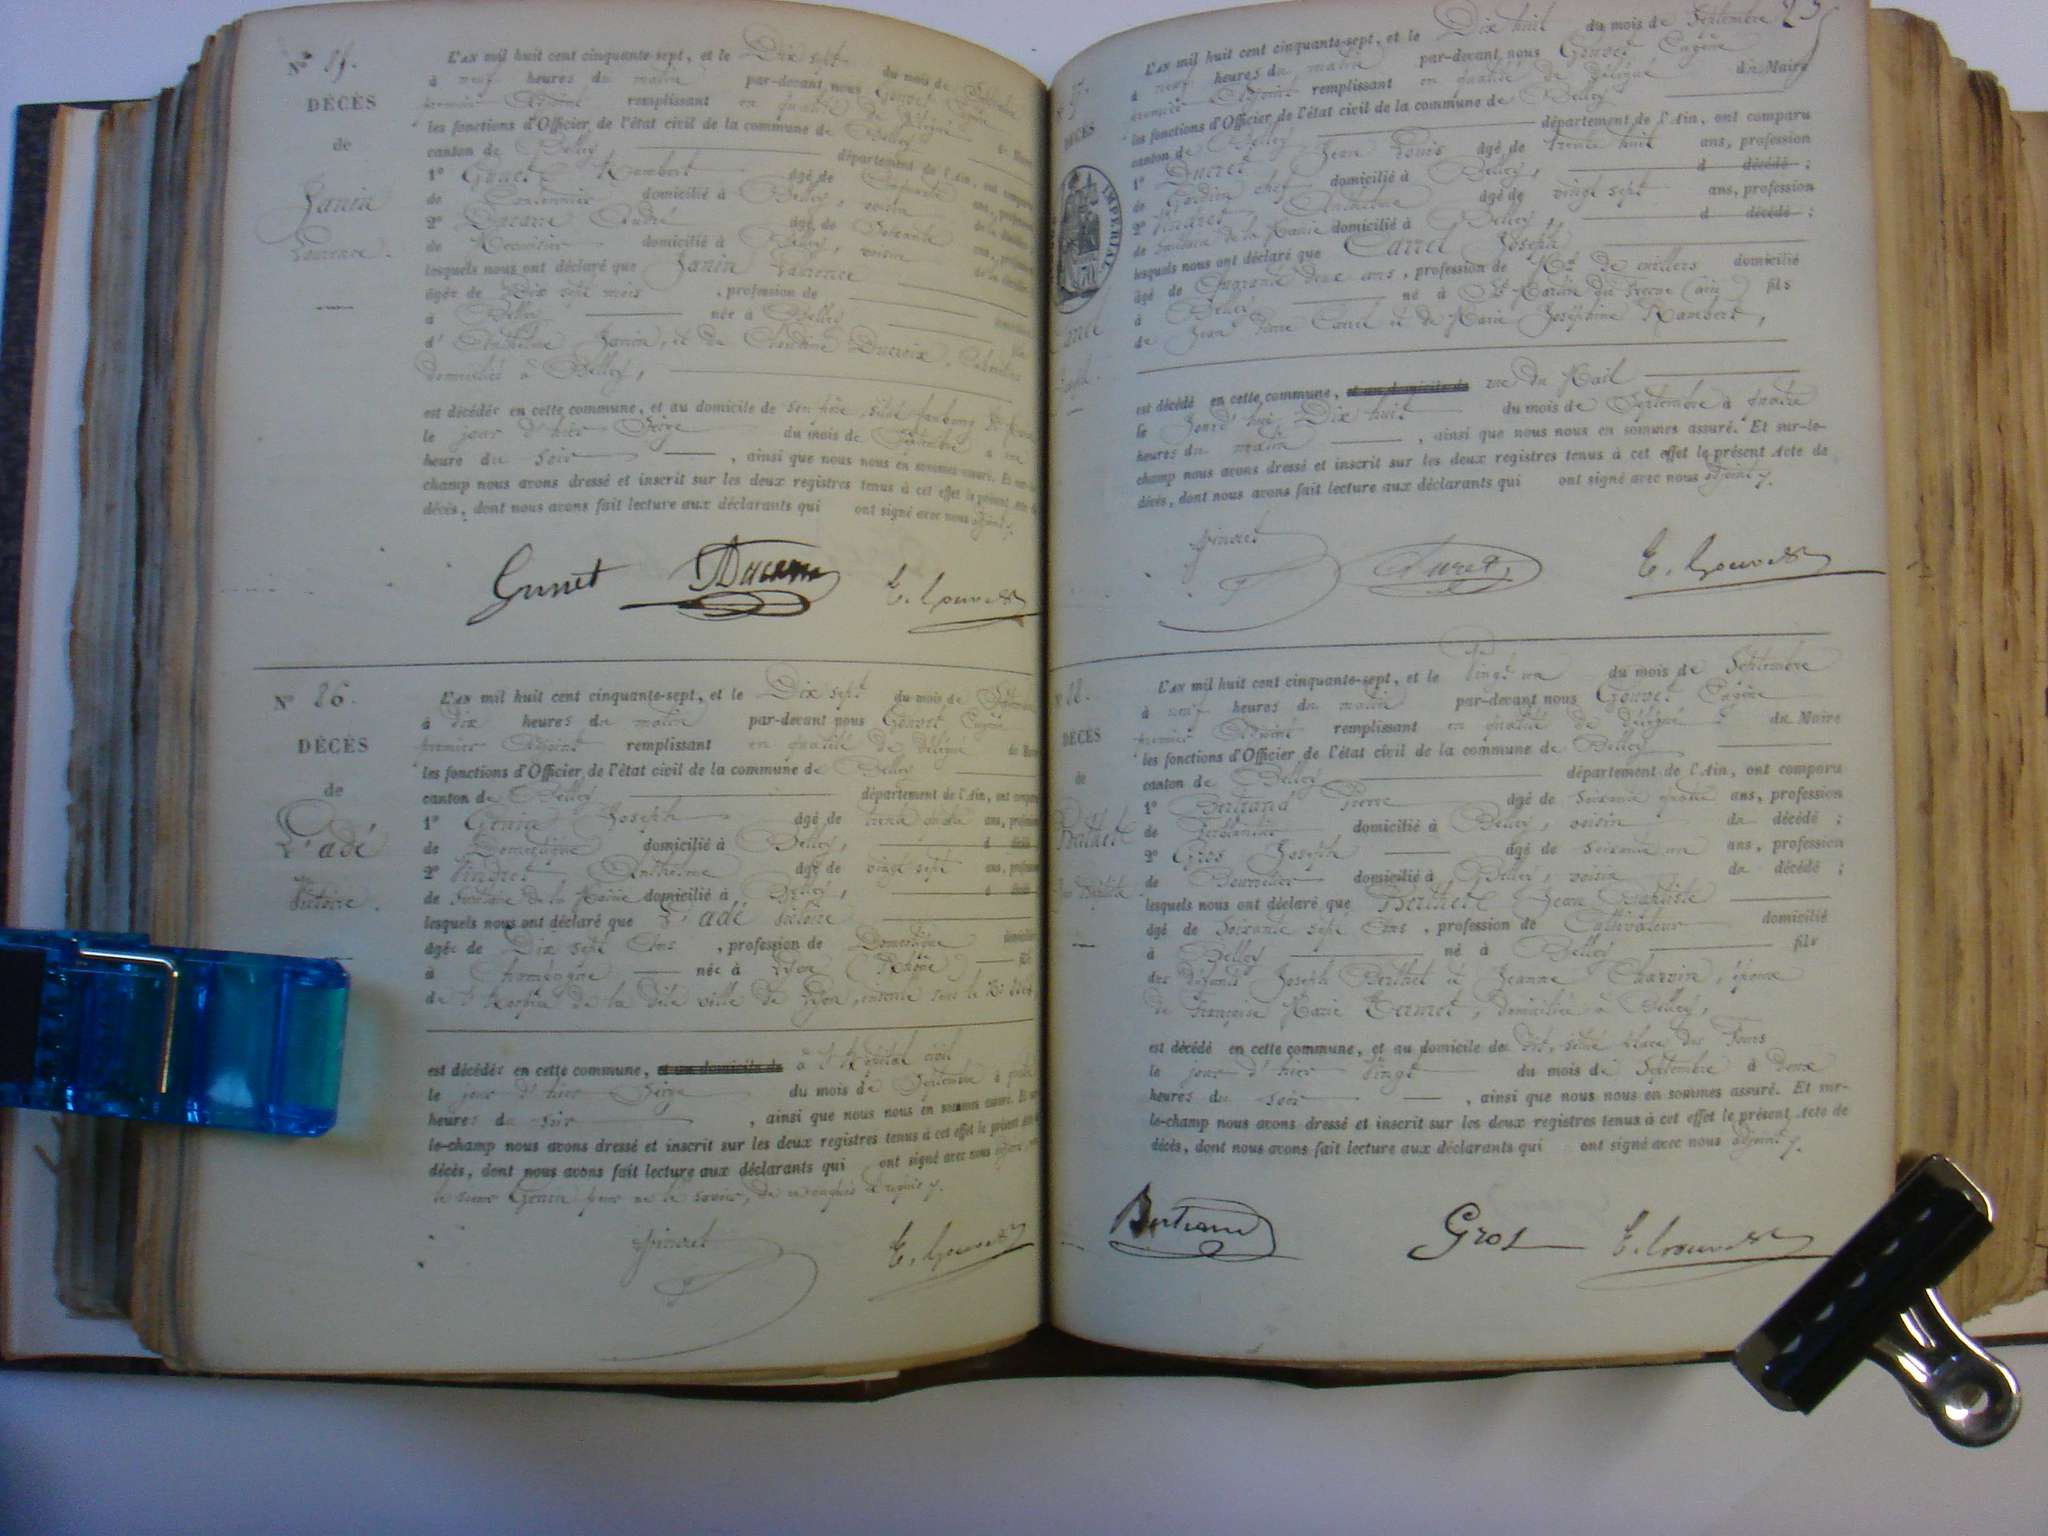 N° 85.
DÉCÈS
de
Janin
Laurence.
L'AN mil huit cent cinquante-sept, et le Dix sept du mois de Septembre
à neuf heures du matin par-devant nous Gouvet Eugène
premier Adjoint remplissant en qualité de délégué du Maire
les fonctions d'Officier de l'état civil de la commune de Belley
canton de Belley département de l'Ain, ont comparu
1° Rambert âgé de ans, profession
de domicilié à Belley, voisin de la décédée
2° Ducarre André âgé de soixante ans, profession
de domicilié à Belley, voisin de la décédée
lesquels nous ont déclaré que Janin Laurence
âgée de Dix sept mois, profession de
à Belley née à Belley
d'Anthelme Janin, et de Claudine Ducroix,
domiciliés à Belley,
est décédée en cette commune, et au domicile de son père, situé faubourg
le jour d'hier Seize du mois de Septembre à une
heure du soir, ainsi que nous nous en sommes assuré. Et sur-le-
champ nous avons dressé et inscrit sur les deux registres tenus à cet effet le présent acte de
décès, dont nous avons fait lecture aux déclarants qui ont signé avec nous adjoint.
Ducarre E. Gouvet
N° 86.
DÉCÈS
de
Victoire.
L'AN mil huit cent cinquante-sept, et le Dix sept du mois de Septembre
à dix heures du matin par-devant nous Gouvet Eugène
premier Adjoint remplissant en qualité de délégué du Maire
les fonctions d'Officier de l'état civil de la commune de Belley
canton de Belley département de l'Ain, ont comparu
1° Genin Joseph âgé de trente quatre ans, profession
de Domestique domicilié à Belley, d décédé
2° Vindret, Anthelme âgé de vingt sept ans, profession
de Secrétaire de la Mairie domicilié à Belley, d décédé
lesquels nous ont déclaré que Victoire
âgée de Dix sept Ans, profession de Domestique domiciliée
à née à Lyon (Rhône) fille
de l'hospice de la dite ville de Lyon, inscrite sous le N°
est décédée en cette commune, et au domicile de à l'hôpital civil
le jour d'hier Seize du mois de Septembre à
heures du soir, ainsi que nous nous en sommes assuré. Et sur-
le-champ nous avons dressé et inscrit sur les deux registres tenus à cet effet le présent acte de
décès, dont nous avons fait lecture aux déclarants qui ont signé avec nous adjoint, non
le sieur Genin pour ne le savoir, de ce enquis et requis.
Vindret E. Gouvet
DÉCÈS
IMPÉRIAL
L'AN mil huit cent cinquante-sept, et le Dix huit du mois de Septembre
à neuf heures du matin par-devant nous Gouvet Eugène
premier Adjoint remplissant en qualité de délégué du Maire
les fonctions d'Officier de l'état civil de la commune de Belley
canton de Belley département de l'Ain, ont comparu
1° Ducret Jean Louis âgé de trente huit ans, profession
de Gardien chef domicilié à Belley, d décédé ;
2° Vindret, Anthelme âgé de vingt sept ans, profession
de Secrétaire de la Mairie domicilié à Belley, d décédé ;
lesquels nous ont déclaré que Carrel Joseph
âgé de Quarante deux ans, profession de domicilié
à Belley né à St Martin (ain) fils
de Jean Pierre Carrel et de Marie Joséphine Rambert,
est décédé en cette commune, et au domicile de rue du Mail
le Jourd'hui Dix huit du mois de Septembre à quatre
heures du matin, ainsi que nous nous en sommes assuré. Et sur-le-
champ nous avons dressé et inscrit sur les deux registres tenus à cet effet le présent Acte de
décès, dont nous avons fait lecture aux déclarants qui ont signé avec nous adjoint.
Vindret Ducret E. Gouvet
88.
DÉCÈS
de
Berthet
Jean Baptiste
L'AN mil huit cent cinquante-sept, et le Vingt un du mois de Septembre
à neuf heures du matin par-devant nous Gouvet Eugène
premier Adjoint remplissant en qualité de délégué du Maire
les fonctions d'Officier de l'état civil de la commune de Belley
canton de Belley département de l'Ain, ont comparu
1° Bertrand Pierre âgé de soixante quatre ans, profession
de Ferblantier, domicilié à Belley, voisin du décédé ;
2° Gros Joseph âgé de soixante un ans, profession
de Bourrelier domicilié à Belley, voisin du décédé ;
lesquels nous ont déclaré que Berthet Jean Baptiste
âgé de soixante sept Ans, profession de Cultivateur domicilié
à Belley né à Belley fils
des défunts Joseph Berthet et Jeanne Charvin, époux
de Françoise Marie, domiciliée à Belley,
est décédé en cette commune, et au domicile du dit, situé place des Fours
le jour d'hier Vingt du mois de Septembre à deux
heures du soir, ainsi que nous nous en sommes assuré. Et sur-
le-champ nous avons dressé et inscrit sur les deux registres tenus à cet effet le présent Acte de
décès, dont nous avons fait lecture aux déclarants qui ont signé avec nous adjoint.
Bertrand Gros E. Gouvet